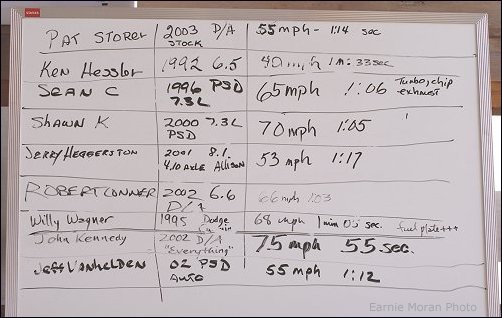 PAT STORER 2003 D/A STOCK 55 mph - 1:14 sec
Ken Hessler 1992 6.5 40 mph 1m:33sec
SEAN C 1996 PSD 7.3L 65 mph 1:06 Turbo, chip exhaust
SHAWN K 2000 7.3L PSD 70 mph 1:05
JERRY HEGGERSTON 2001 8.1. 4.10 AXLE ALLISON 53 mph 1:17
ROBERT CONNER 2002 6.6 D/A 66 mph 1:03
Willy Wagner 1995 Dodge 68 mph 1 min 05 sec. fuel plate+++
John Kennedy 2002 D/A "Everything" 75 mph 55 sec.
Jeff VANHELDEN 02 PSD AUTO 55 mph 1:12
Earnie Moran Photo